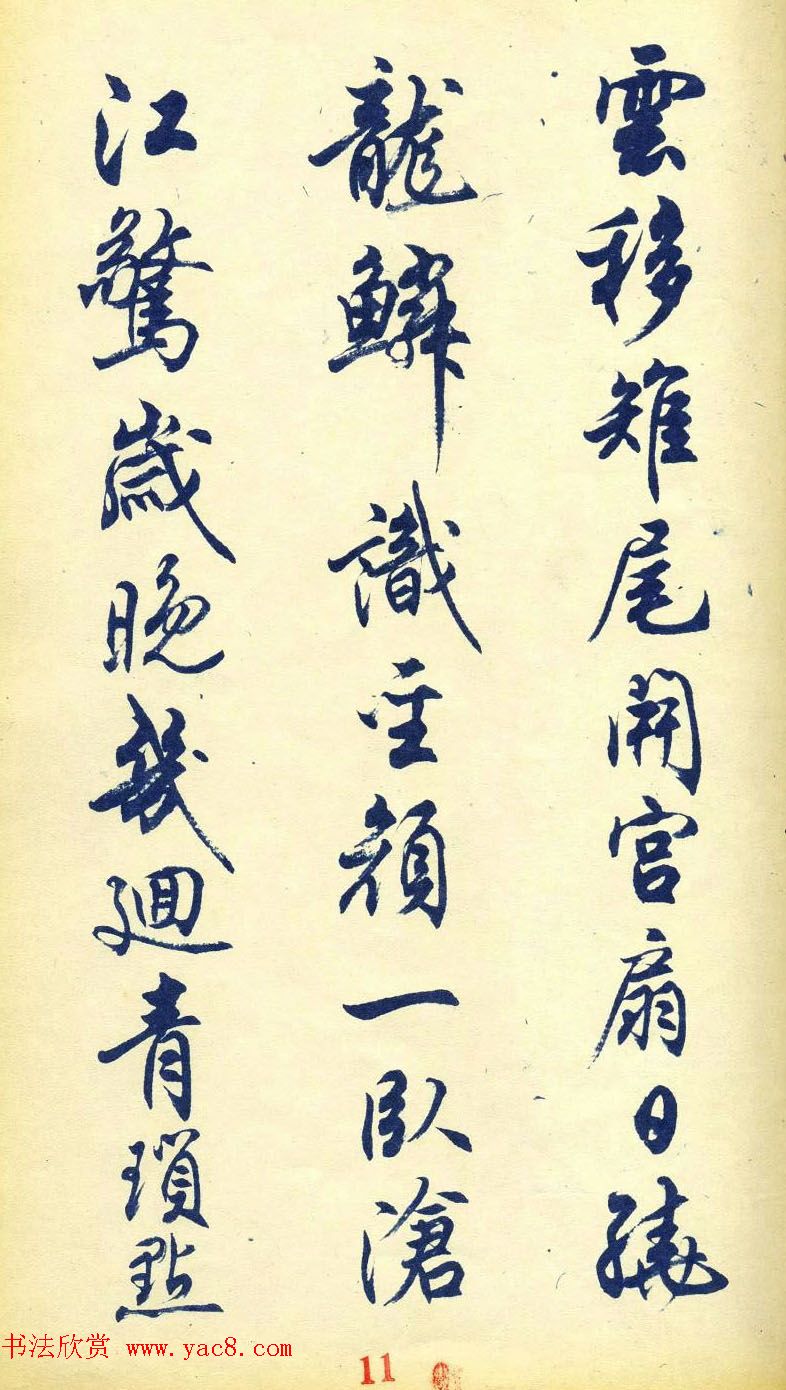 雲移雉尾開宫扇日繞
龍鱗識聖顔一臥滄
江驚歲晚幾迴青瑣點
书法欣赏 www.yac8.com
11